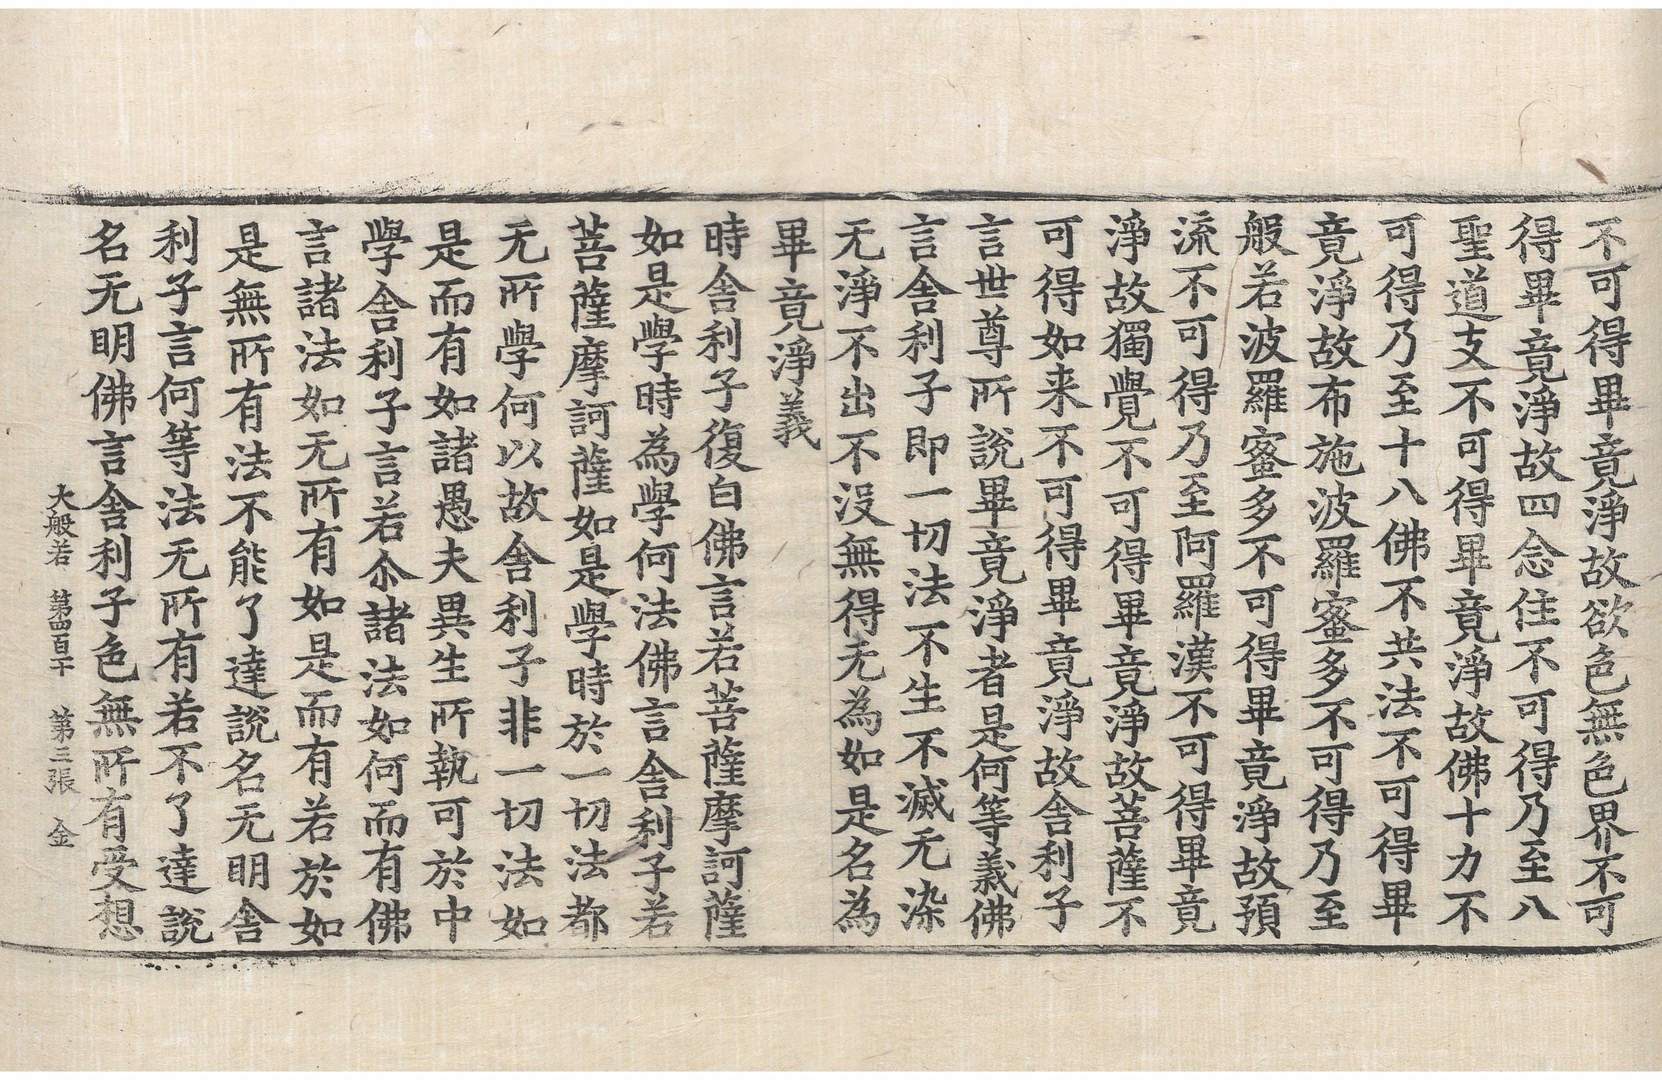 不可得畢竟淨故欲色無色界不可
得畢竟淨故四念住不可得乃至八
聖道支不可得畢竟淨故佛十力不
可得乃至十八佛不共法不可得畢
竟淨故布施波羅蜜多不可得乃至
般若波羅蜜多不可得畢竟淨故預
流不可得乃至阿羅漢不可得畢竟
淨故獨覺不可得畢竟淨故菩薩不
可得如来不可得畢竟淨故舍利子
言世尊所說畢竟淨者是何等義佛
言舍利子即一切法不生不滅无染
无淨不出不没無得无為如是名為
畢竟淨義
時舍利子復白佛言若菩薩摩訶薩
如是學時為學何法佛言舍利子若
菩薩摩訶薩如是學時於一切法都
无所學何以故舍利子非一切法如
是而有如諸愚夫異生所執可於中
學舍利子言若尒諸法如何而有佛
言諸法如无所有如是而有若於如
是無所有法不能了達說名无明舍
利子言何等法无所有若不了達說
名无明佛言舍利子色無所有受想
大般若 第四百十 第三張 金